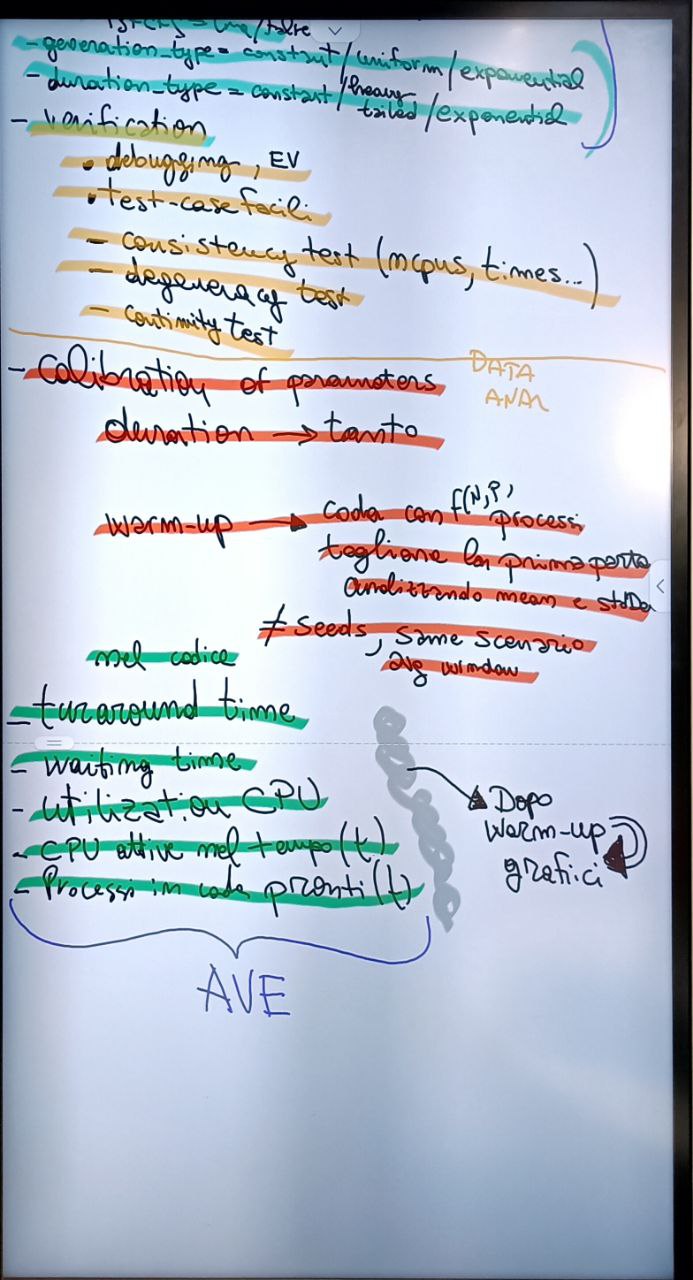 - generation_type = constant/uniform/exponential
- duration_type = constant/heavy tailed/exponential
- verification
• debugging, EV
• test-case facili
- consistency test (ncpus, times...)
- degeneracy test
- continuity test
DATA
ANAL
- calibration of parameters
duration → tanto
warm-up → coda con f(N,P) processi
togliere la prima parte
analizzando mean e stdDev
≠ seeds, same scenario
avg window
nel codice
- turaround time
- waiting time
- utilization CPU
- CPU attive nel tempo (t)
- Processi in coda pronti (t)
Dopo
warm-up
grafici
AVE